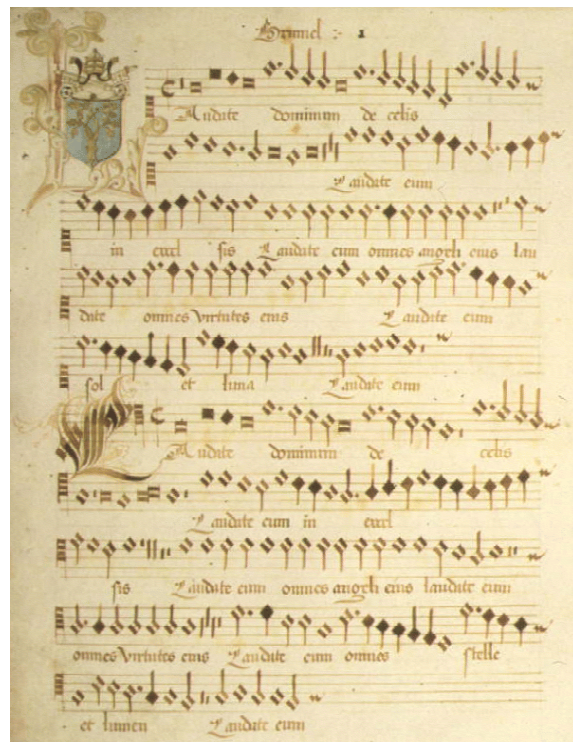 Brumel :· 1
Laudate dominum de celis
Laudate eum
in excel sis Laudate eum omnes angeli eius lau
date omnes virtutes eius Laudate eum
sol et luna Laudate eum
Laudate dominum de celis
Laudate eum in excel
sis Laudate eum omnes angeli eius laudate eum
omnes virtutes eius Laudate eum omnes stelle
et lumen Laudate eum